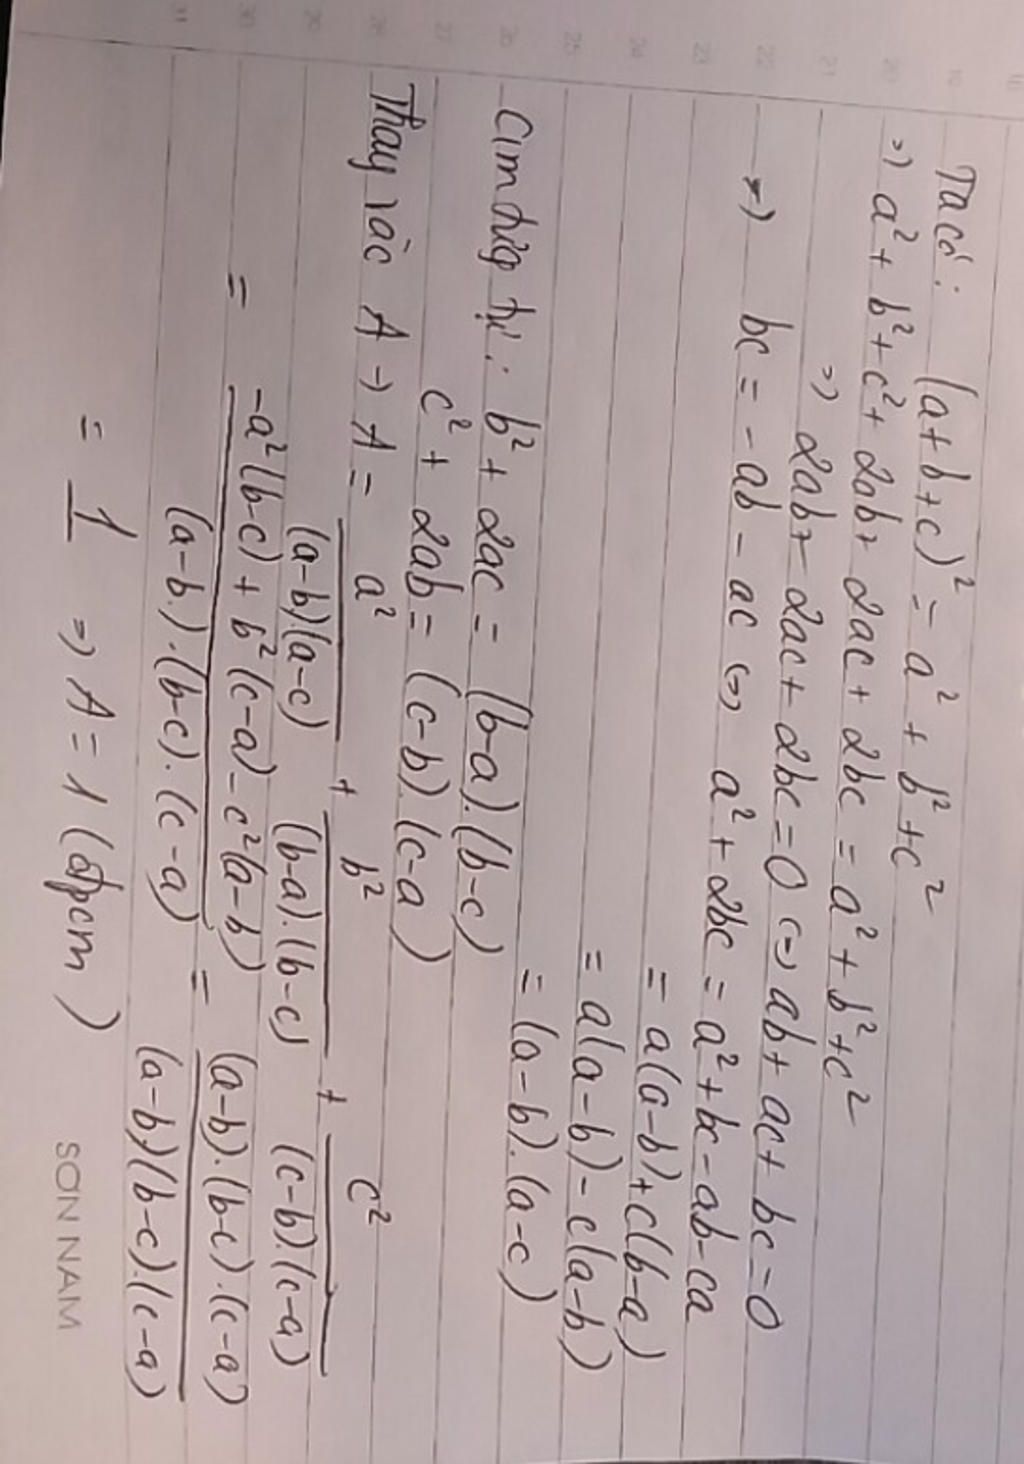 Ta có: (a+b+c)² = a² + b² + c²
=) a² + b² + c² + 2ab + 2ac + 2bc = a² + b² + c²
=) 2ab + 2ac + 2bc = 0 (=) ab + ac + bc = 0
=) bc = - ab - ac (=) a² + 2bc = a² + bc - ab - ca
= a(a-b) + c(b-a)
= a(a-b) - c(a-b)
= (a-b).(a-c)
Cm tương tự: b² + 2ac = (b-a).(b-c)
c² + 2ab = (c-b).(c-a)
Thay vào A → A = a²/(a-b)(a-c) + b²/(b-a).(b-c) + c²/(c-b).(c-a)
= -a²(b-c) + b²(c-a) - c²(a-b)/(a-b).(b-c).(c-a) = (a-b).(b-c).(c-a)/(a-b)(b-c).(c-a)
= 1 => A = 1 (đpcm)
SON NAM
18
19
20
21
22
23
24
25
26
27
28
29
30
31